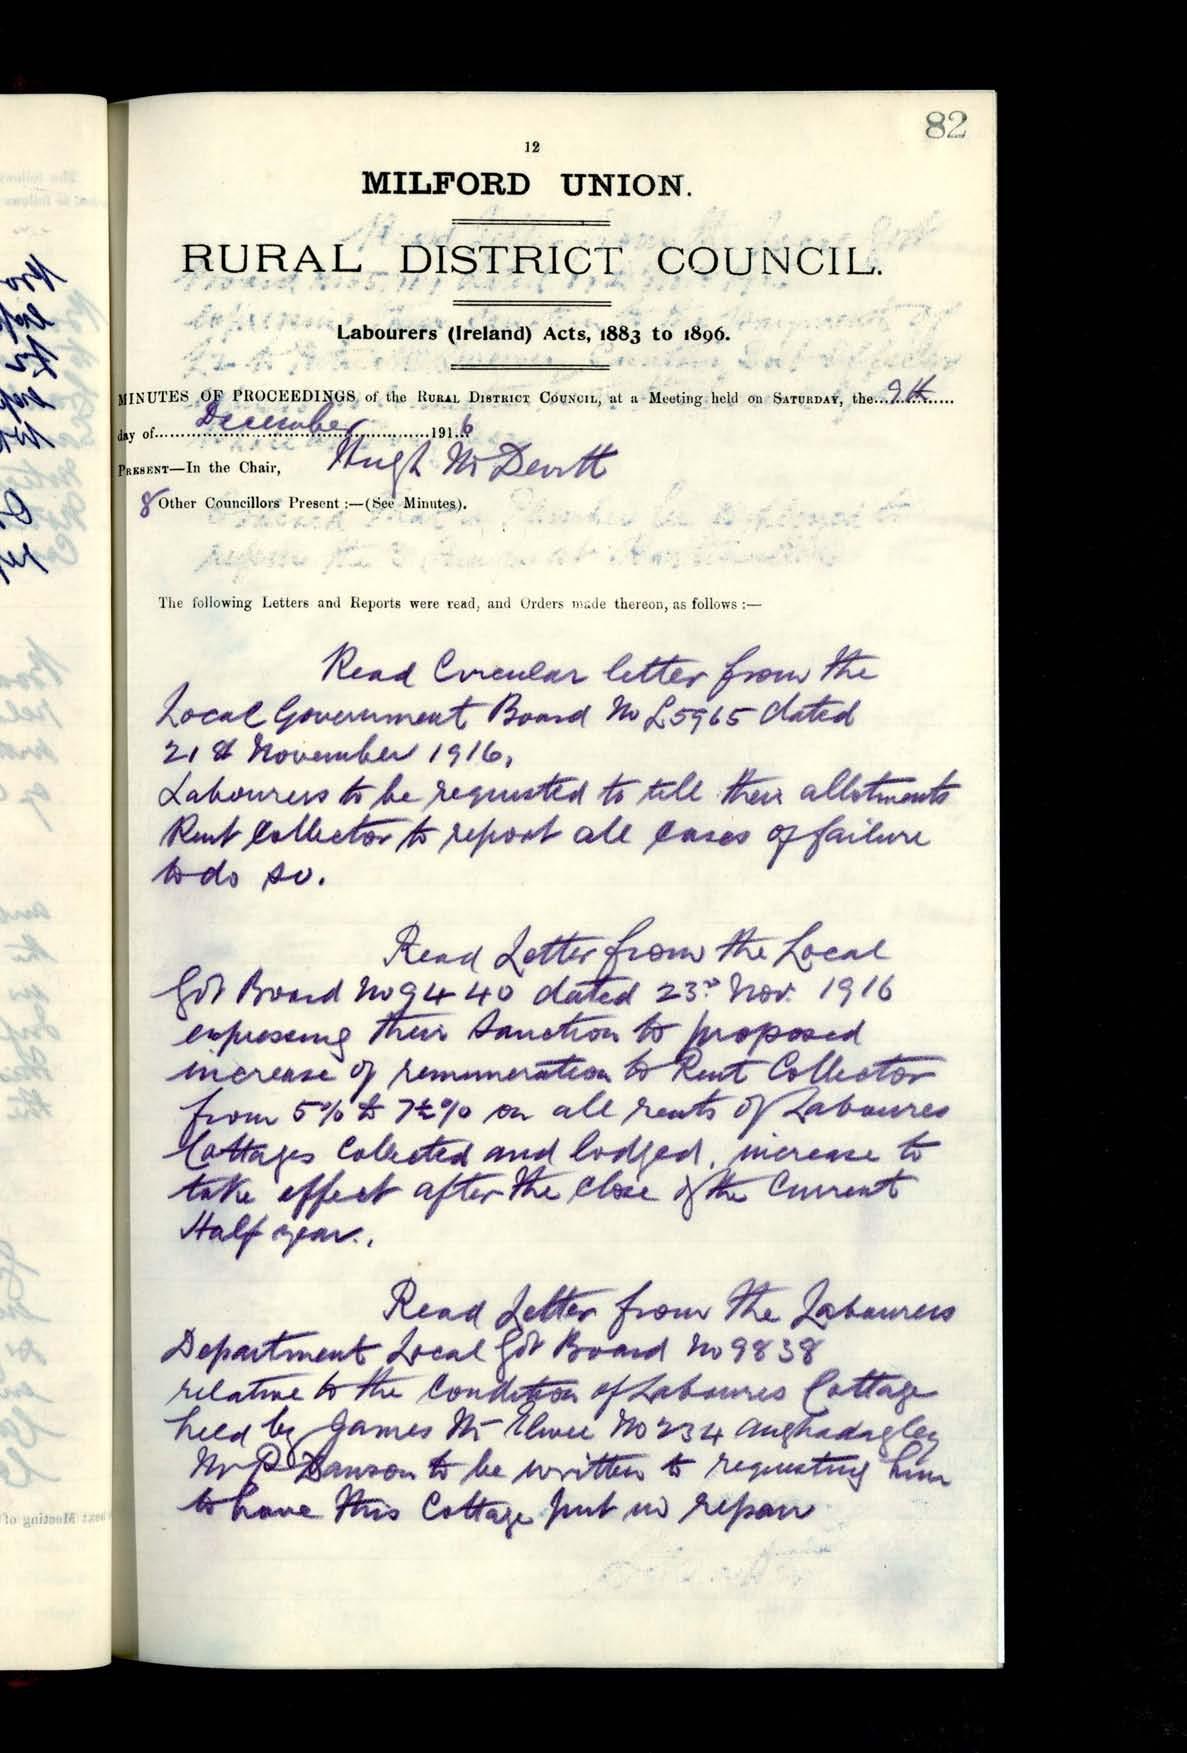 82
12
MILFORD UNION.
RURAL DISTRICT COUNCIL.
Labourers (Ireland) Acts, 1883 to 1896.
MINUTES OF PROCEEDINGS of the RURAL DISTRICT COUNCIL, at a Meeting held on SATURDAY, the 9th
day of December 1916
PRESENT—In the Chair, Hugh McDevitt
8 Other Councillors Present :—(See Minutes).
The following Letters and Reports were read, and Orders made thereon, as follows :—
Read Circular letter from the
Local Government Board No L5965 dated
21st November 1916.
Labourers to be requested to till their allotments
Rent Collector to report all cases of failure
to do so.
Read Letter from the Local
Govt Board No 9440 dated 23rd Nov. 1916
expressing their sanction to proposed
increase of remuneration to Rent Collector
from 5% to 7½% on all rents of Laboures
Cottages Collected and lodged, increase to
take effect after the close of the Current
Half year.
Read Letter from the Labourers
Department Local Govt Board No 9838
relative to the Condition of Laboures Cottage
held by James McElwee No 234 Aughadagley
Mr P Dawson to be written to requesting him
to have this Cottage put in repair